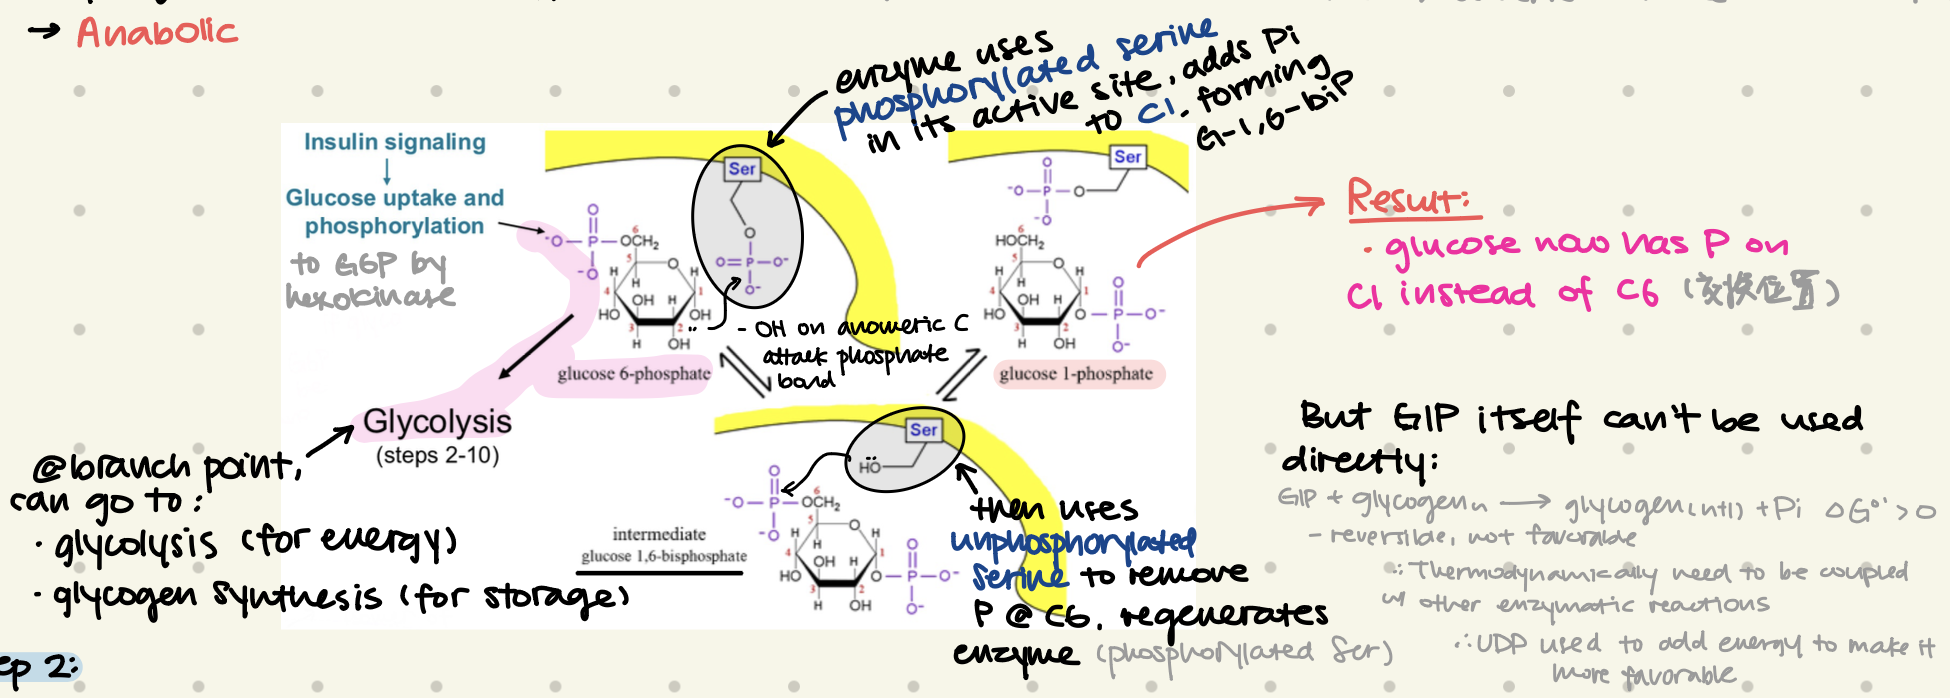 → Anabolic
enzyme uses
phosphorylated serine
in its active site, adds Pi
to C1. forming
G-1,6-biP
Insulin signaling
Glucose uptake and
phosphorylation
to G6P by
hexokinase
Ser
O
-O-P-OCH₂
-O
6
5
H
O
H
H
4
OH H
1
HO
OH
3
2
H
OH
O
O=P-O-
O-
glucose 6-phosphate
- OH on anomeric C
attack phosphate
bond
Ser
O
-O-P-O
-O
HOCH₂
6
5
H
O
H
H
4
OH H
1
HO
O-P-O-
O
O-
3
2
H
OH
glucose 1-phosphate
Result:
· glucose now has P on
C1 instead of C6 (交换位置)
Glycolysis
(steps 2-10)
@branch point,
can go to:
· glycolysis (for energy)
· glycogen synthesis (for storage)
Ser
HO
O
-O-P-OCH₂
-O
6
5
H
O
H
H
4
OH H
1
HO
O-P-O-
O
O-
3
2
H
OH
intermediate
glucose 1,6-bisphosphate
then uses
unphosphorylated
serine to remove
P @ C6, regenerates
enzyme (phosphorylated Ser)
But G1P itself can't be used
directly:
G1P + glycogen n → glycogen (n+1) + Pi ΔG°' > 0
- reversible, not favorable
∴ Thermodynamically need to be coupled
w/ other enzymatic reactions
∴ UDP used to add energy to make it
more favorable
ep 2: